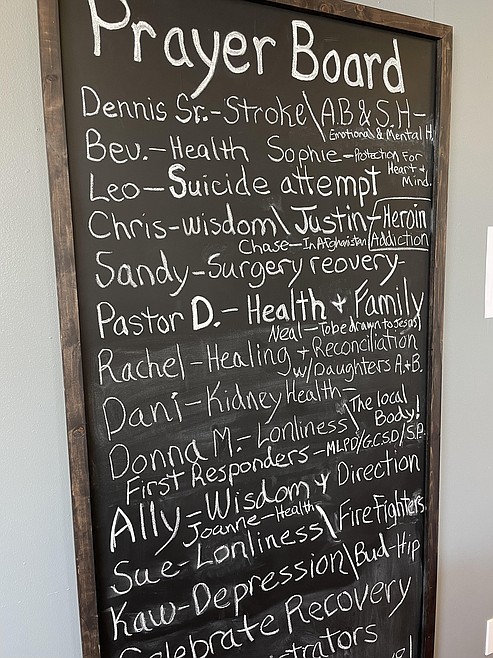 Prayer Board
Dennis Sr.-Stroke\A.B & S.H-
Emotional & Mental H.
Bev.-Health Sophie-Protection for
Heart &
Mind.
Leo-Suicide attempt
Chris-wisdom\Justin-Heroin
Addiction
Chase-In Afghanistan
Sandy-Surgery reovery-
Pastor D.- Health & Family
Neal-To be drawn to Jesus
Rachel-Healing & Reconciliation
w/Daughters A.+B.
Dani-Kidney Health-
Donna M.-Lonliness\The local
Body!
First Responders-MLPD/G.C.S.D/S.P.
Ally-Wisdom & Direction
Joanne-Health
Sue-Lonliness\Fire Fighters.
Kaw-Depression\Bud-Hip
Celebrate Recovery